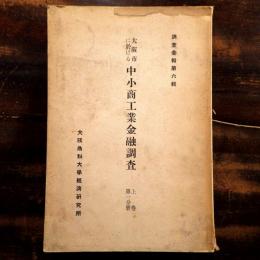 調査彙報第六輯
大阪市に於ける 中小商工業金融調査
上巻
第一分冊
大阪商科大學經濟研究所